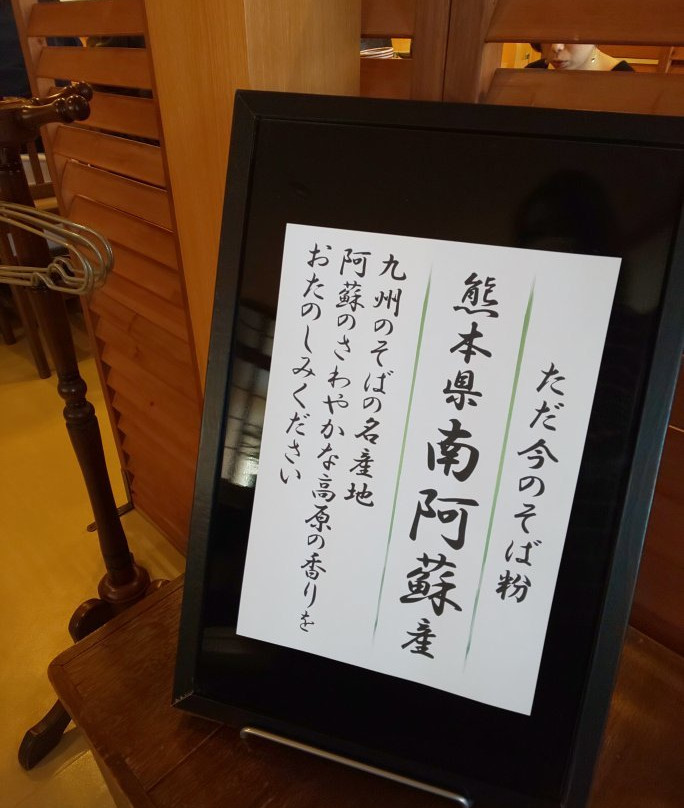 ただ今のそば粉
熊本県南阿蘇産
九州のそばの名産地
阿蘇のさわやかな高原の香りを
おたのしみください